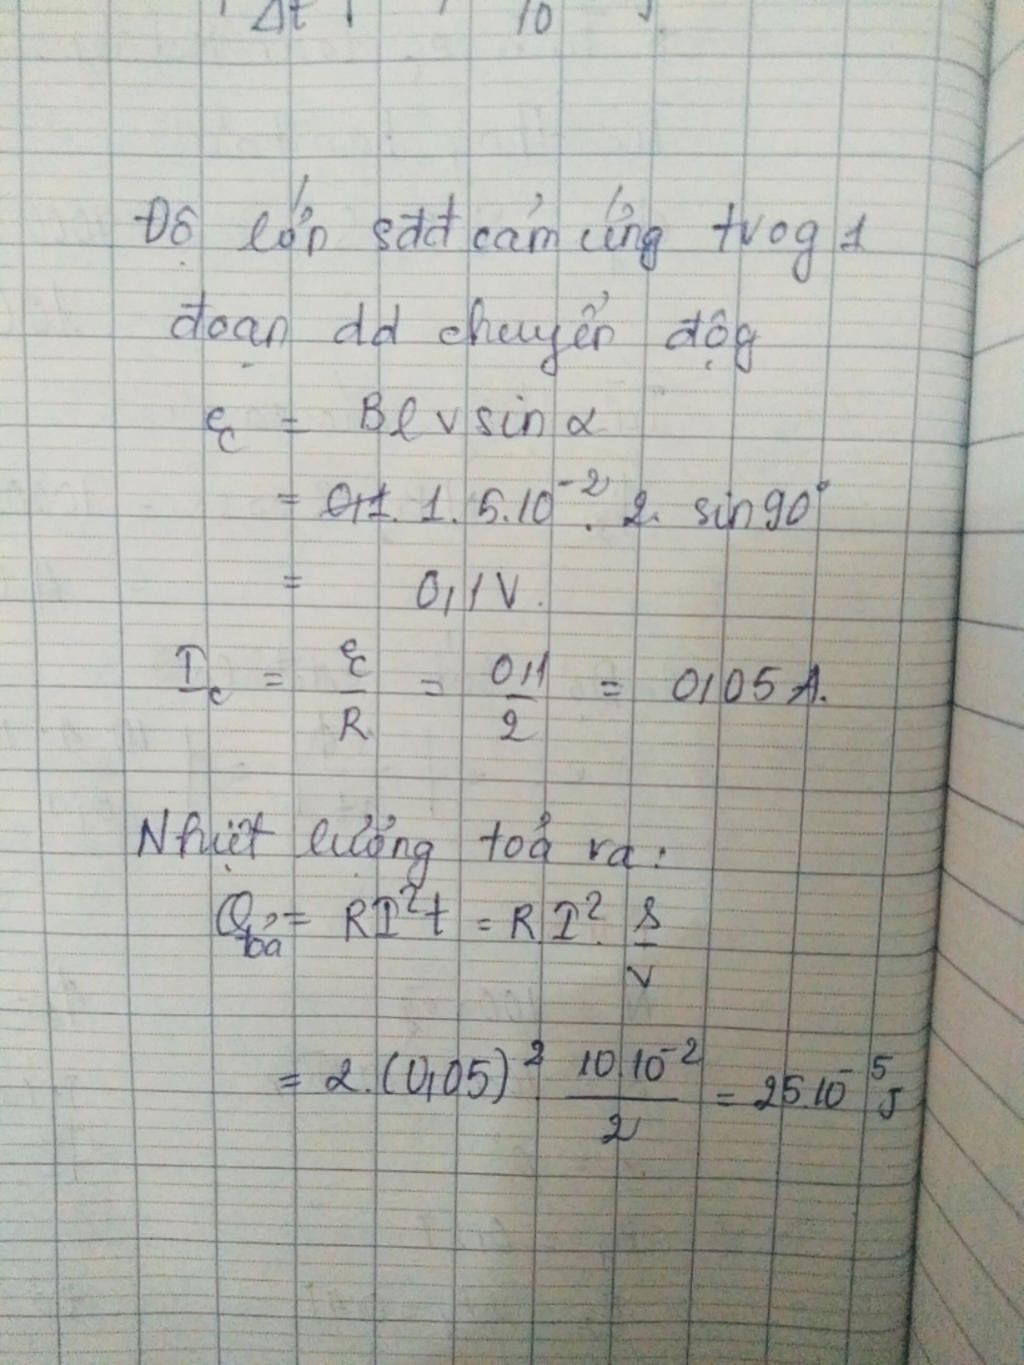 Δt 10
Độ lớn sđđ cảm ứng trog 1
đoạn dd chuyển độg
ec = Blv sin α
= 0,1. 1. 5.10⁻². 2. sin 90°
= 0,1 V.
Ic = ec/R = 0,1/2 = 0,05 A.
Nhiệt lượng toả ra:
Qtoả = RI²t = RI². s/v
= 2.(0,05)². 10.10⁻²/2 = 25.10⁻⁵ J